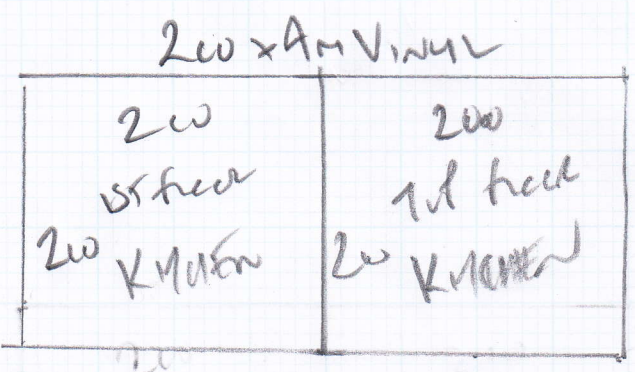 200 x 4M VINYL
200
1ST FLOOR
200 KITCHEN
200
1ST FLOOR
200 KITCHEN